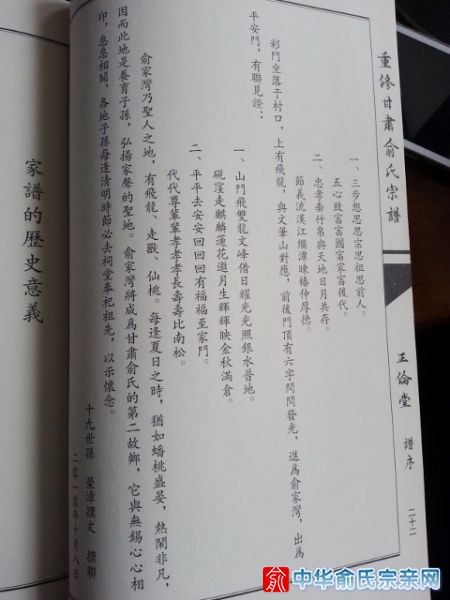 重修甘肅俞氏宗譜
正倫堂
譜序
二十二
一、三步想思思宗思祖思前人。
五心致富富國富家富後代。
二、忠孝垂竹帛與天地日月共存。
節義流漢江繼漳睞椿仲厚德。
彩門坐落于村口，上有飛龍，與文筆山對應，前後門頂有六字閃閃發光，進爲俞家灣，出爲
平安門，有聯見證：
一、山門飛雙龍文峰借日耀光光照銀水普地。
硯窪走麒麟蓮花邀月生輝輝映金秋滿倉。
二、平平去安安回回回有福福至家門。
代代尊輩輩孝孝孝長壽壽比南松。
俞家灣乃聖人之地，有飛龍、走獸、仙桃。每逢夏日之時，猶如蟠桃盛宴，熱鬧非凡，
因而此地是養育子孫，弘揚家聲的聖地。俞家灣將成爲甘肅俞氏的第二故鄉，它與無錫心心相
印，息息相關，各地子孫每逢清明時節必去祠堂奉祀祖先，以示懷念。
十九世孫　榮漳撰文　撰聯
二零一零年十月八日
家譜的歷史意義
俞
中华俞氏宗亲网